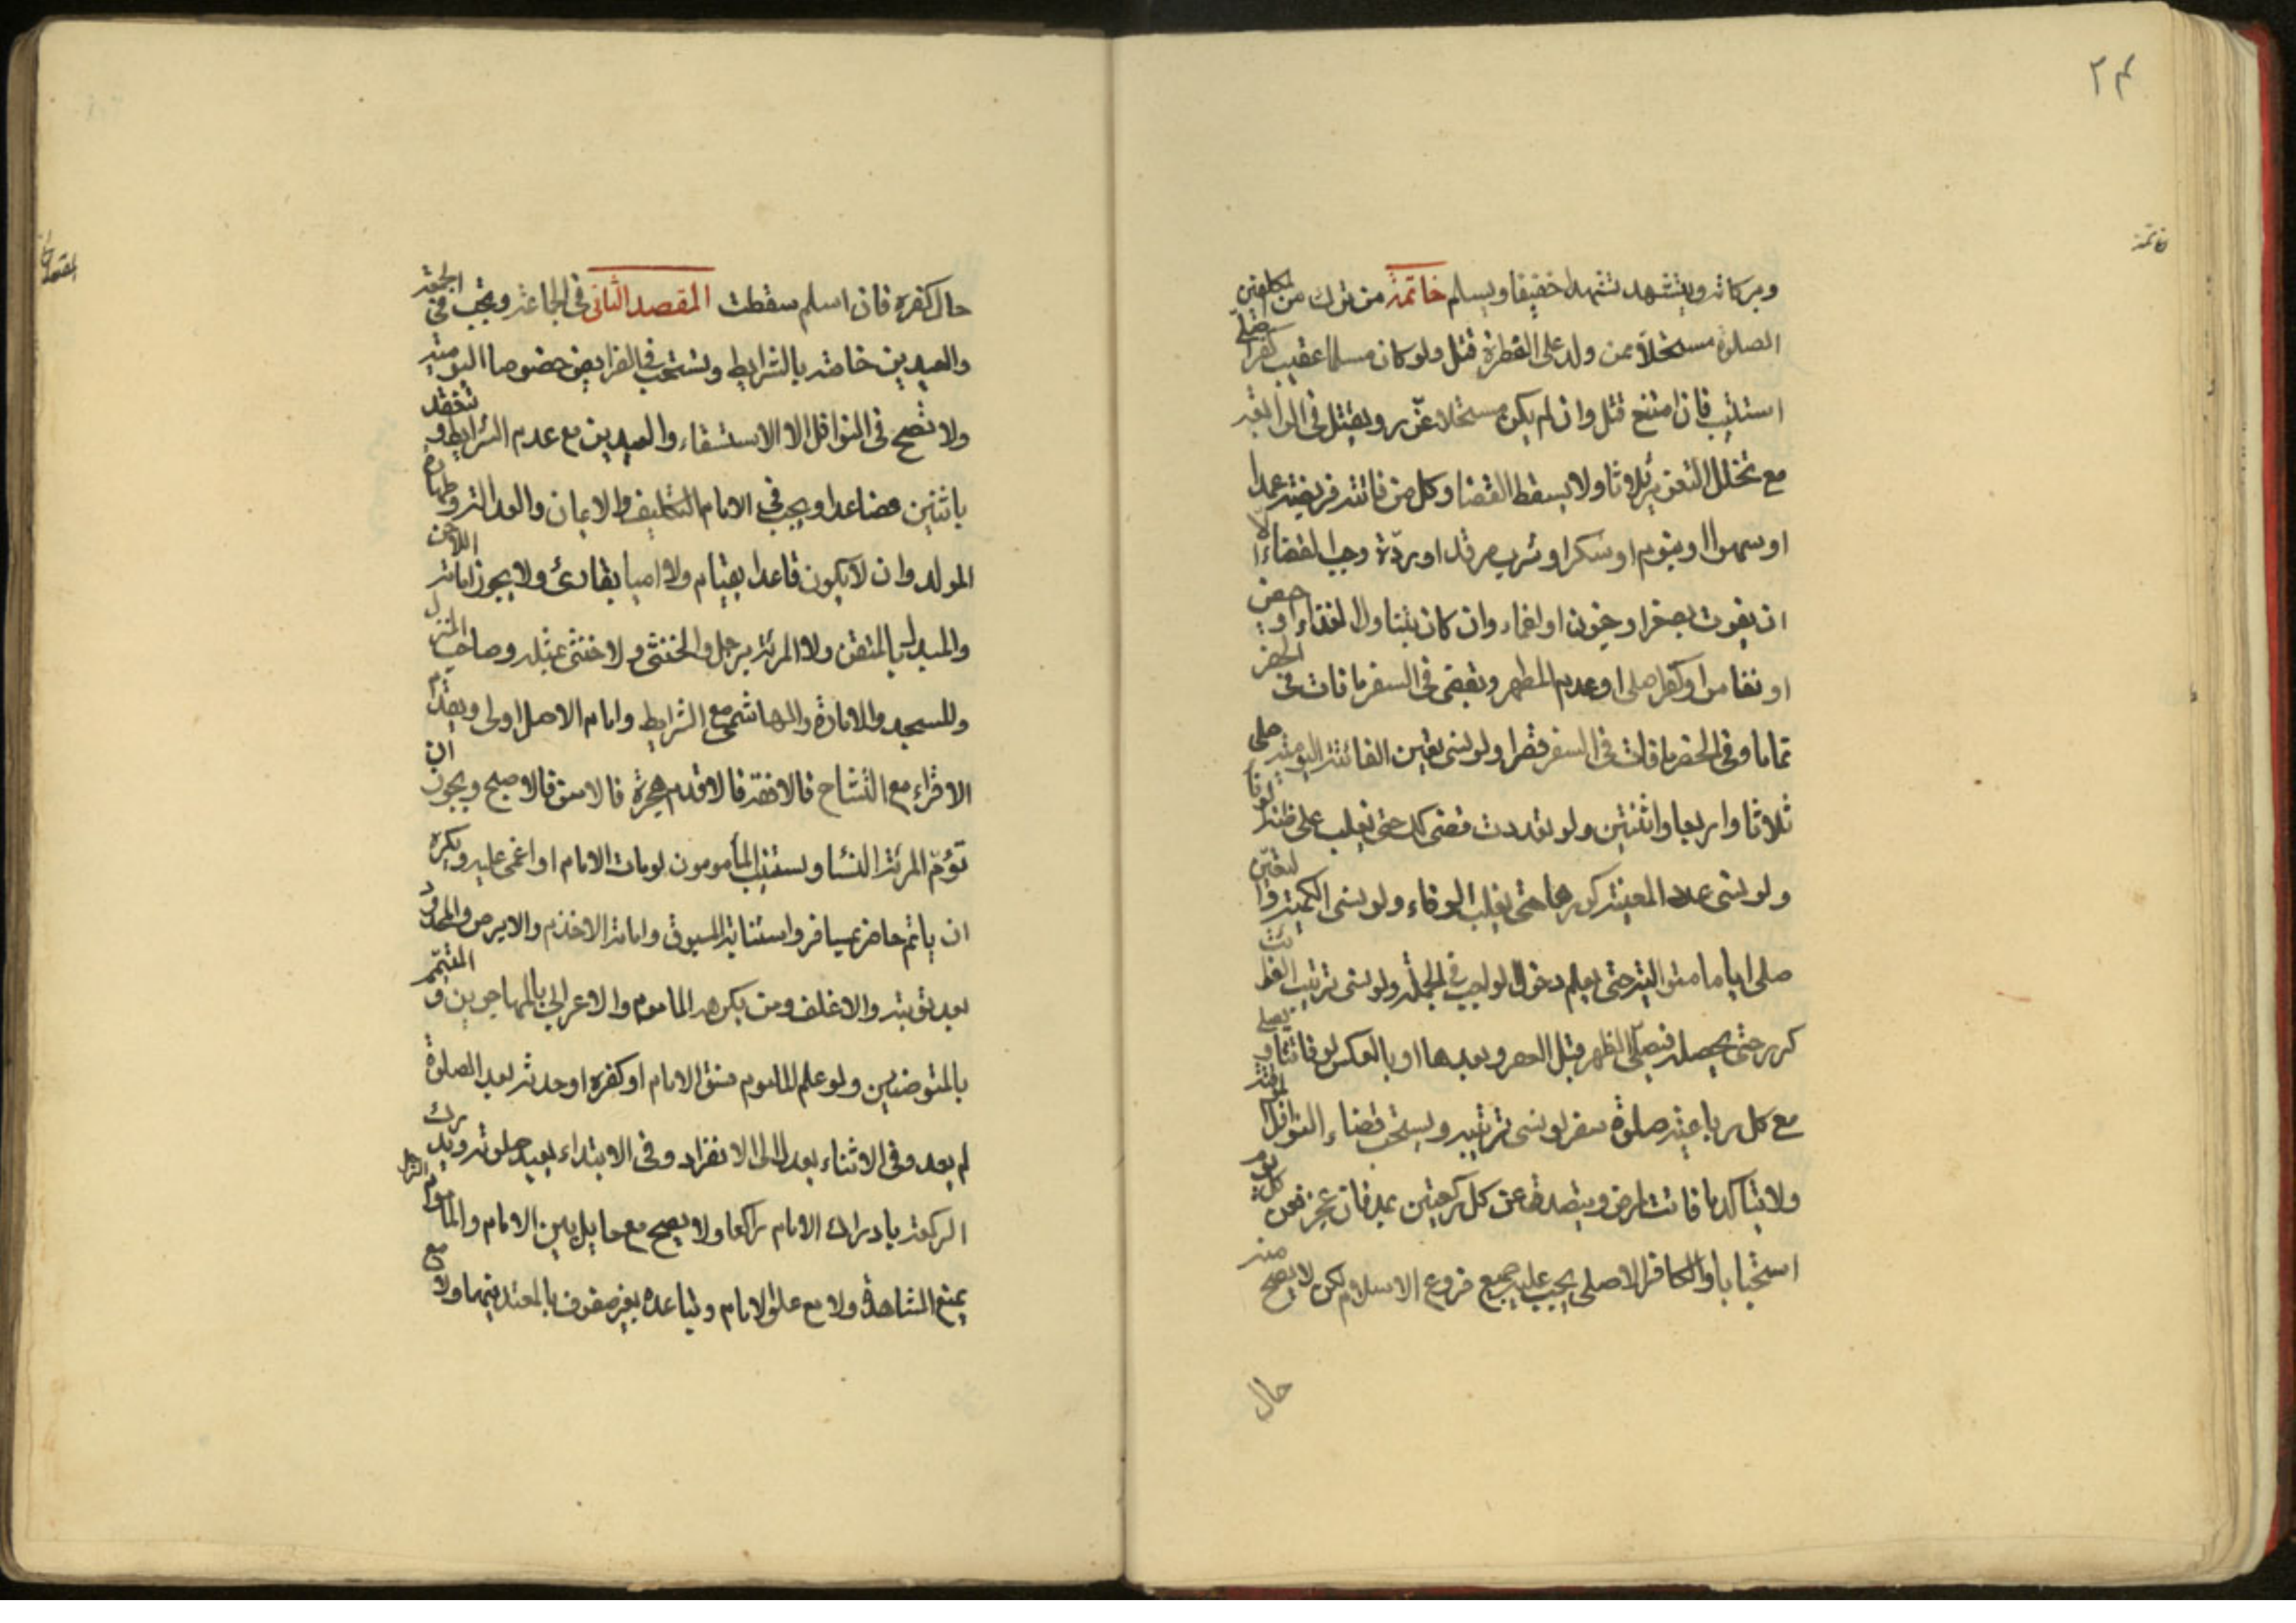 ٢٤
خاتمة
وبركاته ويتشهد تشهدا خفيفا ويسلم خاتمة من ترك من المكلفين
الصلوة مستحلا ممن ولد على الفطرة قتل ولو كان مسلما عقيب كفر اصلي
استتيب فان امتنع قتل وان لم يكن مستحلا عزر ويقتل في الرابعة
مع تخلل التعزير ثلاثا ولا يسقط القضا وكل من فاتته فريضة عمدا
او سهوا او بنوم او سكر او شرب مرقد او ردة وجب القضاء الا
ان يفوت بصغر او جنون او اغماء وان كان بتناول الغذاء او حيض
او نفاس او كفر اصلي او عدم المطهر ويقضي في السفر ما فات في الحضر
تماما وفي الحضر ما فات في السفر قصرا ولو نسي تعيين الفائتة اليومية صلى
ثلاثا واربعا واثنتين ولو تعددت قضى كك حتى يغلب على ظنه الوفا
ولو نسي عدد المعينة كررها حتى يغلب الوفاء ولو نسي الكمية والتعيين
صلى اياما متوالية حتى يعلم دخول الواجب في الجملة ولو نسي ترتيب الفوائت
كرر حتى يحصله فيصلي الظهر قبل العصر وبعدها او بالعكس لو فاتتا ويصلي
مع كل رباعية صلوة سفر لو نسي ترتيبه ويستحب قضاء النوافل الموقتة
ولا يتاكد ما فات لمرض ويتصدق عن كل ركعتين بمد فان عجز فعن كل يوم
استحبابا والكافر الاصلي يجب عليه جميع فروع الاسلام لكن لا يصح منه
حال
المقصد
حال كفره فان اسلم سقطت المقصد الثاني في الجماعة ويجب في الجمعة
والعيدين خاصة بالشرايط وتستحب في الفرايض خصوصا اليومية
ولا تصح في النوافل الا الاستسقاء والعيدين مع عدم الشرايط وتنعقد
باثنين فصاعدا ويجب في الامام التكليف والايمان والعدالة وطهارة
المولد وان لا يكون قاعدا بقيام ولا اميا بقارئ ولا يجوز امامة اللاحن
والمبدل بالمتقن ولا المرئة برجل والخنثى ولا خنثى بمثله وصاحب المنزل
والمسجد والامارة والهاشمي مع الشرايط وامام الاصل اولى ويقدم
الاقراء مع التشاح فالافقه فالاقدم هجرة فالاسن فالاصبح ويجوز ان
تؤم المرئة النسا ويستنيب المأمومون لو مات الامام او اغمي عليه ويكره
ان ياتم حاضر بمسافر واستنابة المسبوق وامامة الاجذم والابرص والمحدود
بعد توبته والاغلف ومن يكرهه الماموم والاعرابي بالمهاجرين والمتيمم
بالمتوضئين ولو علم الماموم فسق الامام او كفره او حدثه بعد الصلوة
لم يعد وفي الاثناء يعدل الى الانفراد وفي الابتداء يعيد صلوته ويدرك
الركعة بادراك الامام راكعا ولا يصح مع حايل بين الامام والماموم الرجل
يمنع المشاهدة ولا مع علو الامام وتباعده بغير صفوف بالمعتد فيهما ولا مع